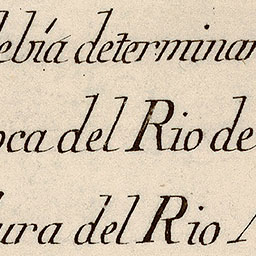 debía determinar
oca del Rio de
dura del Rio